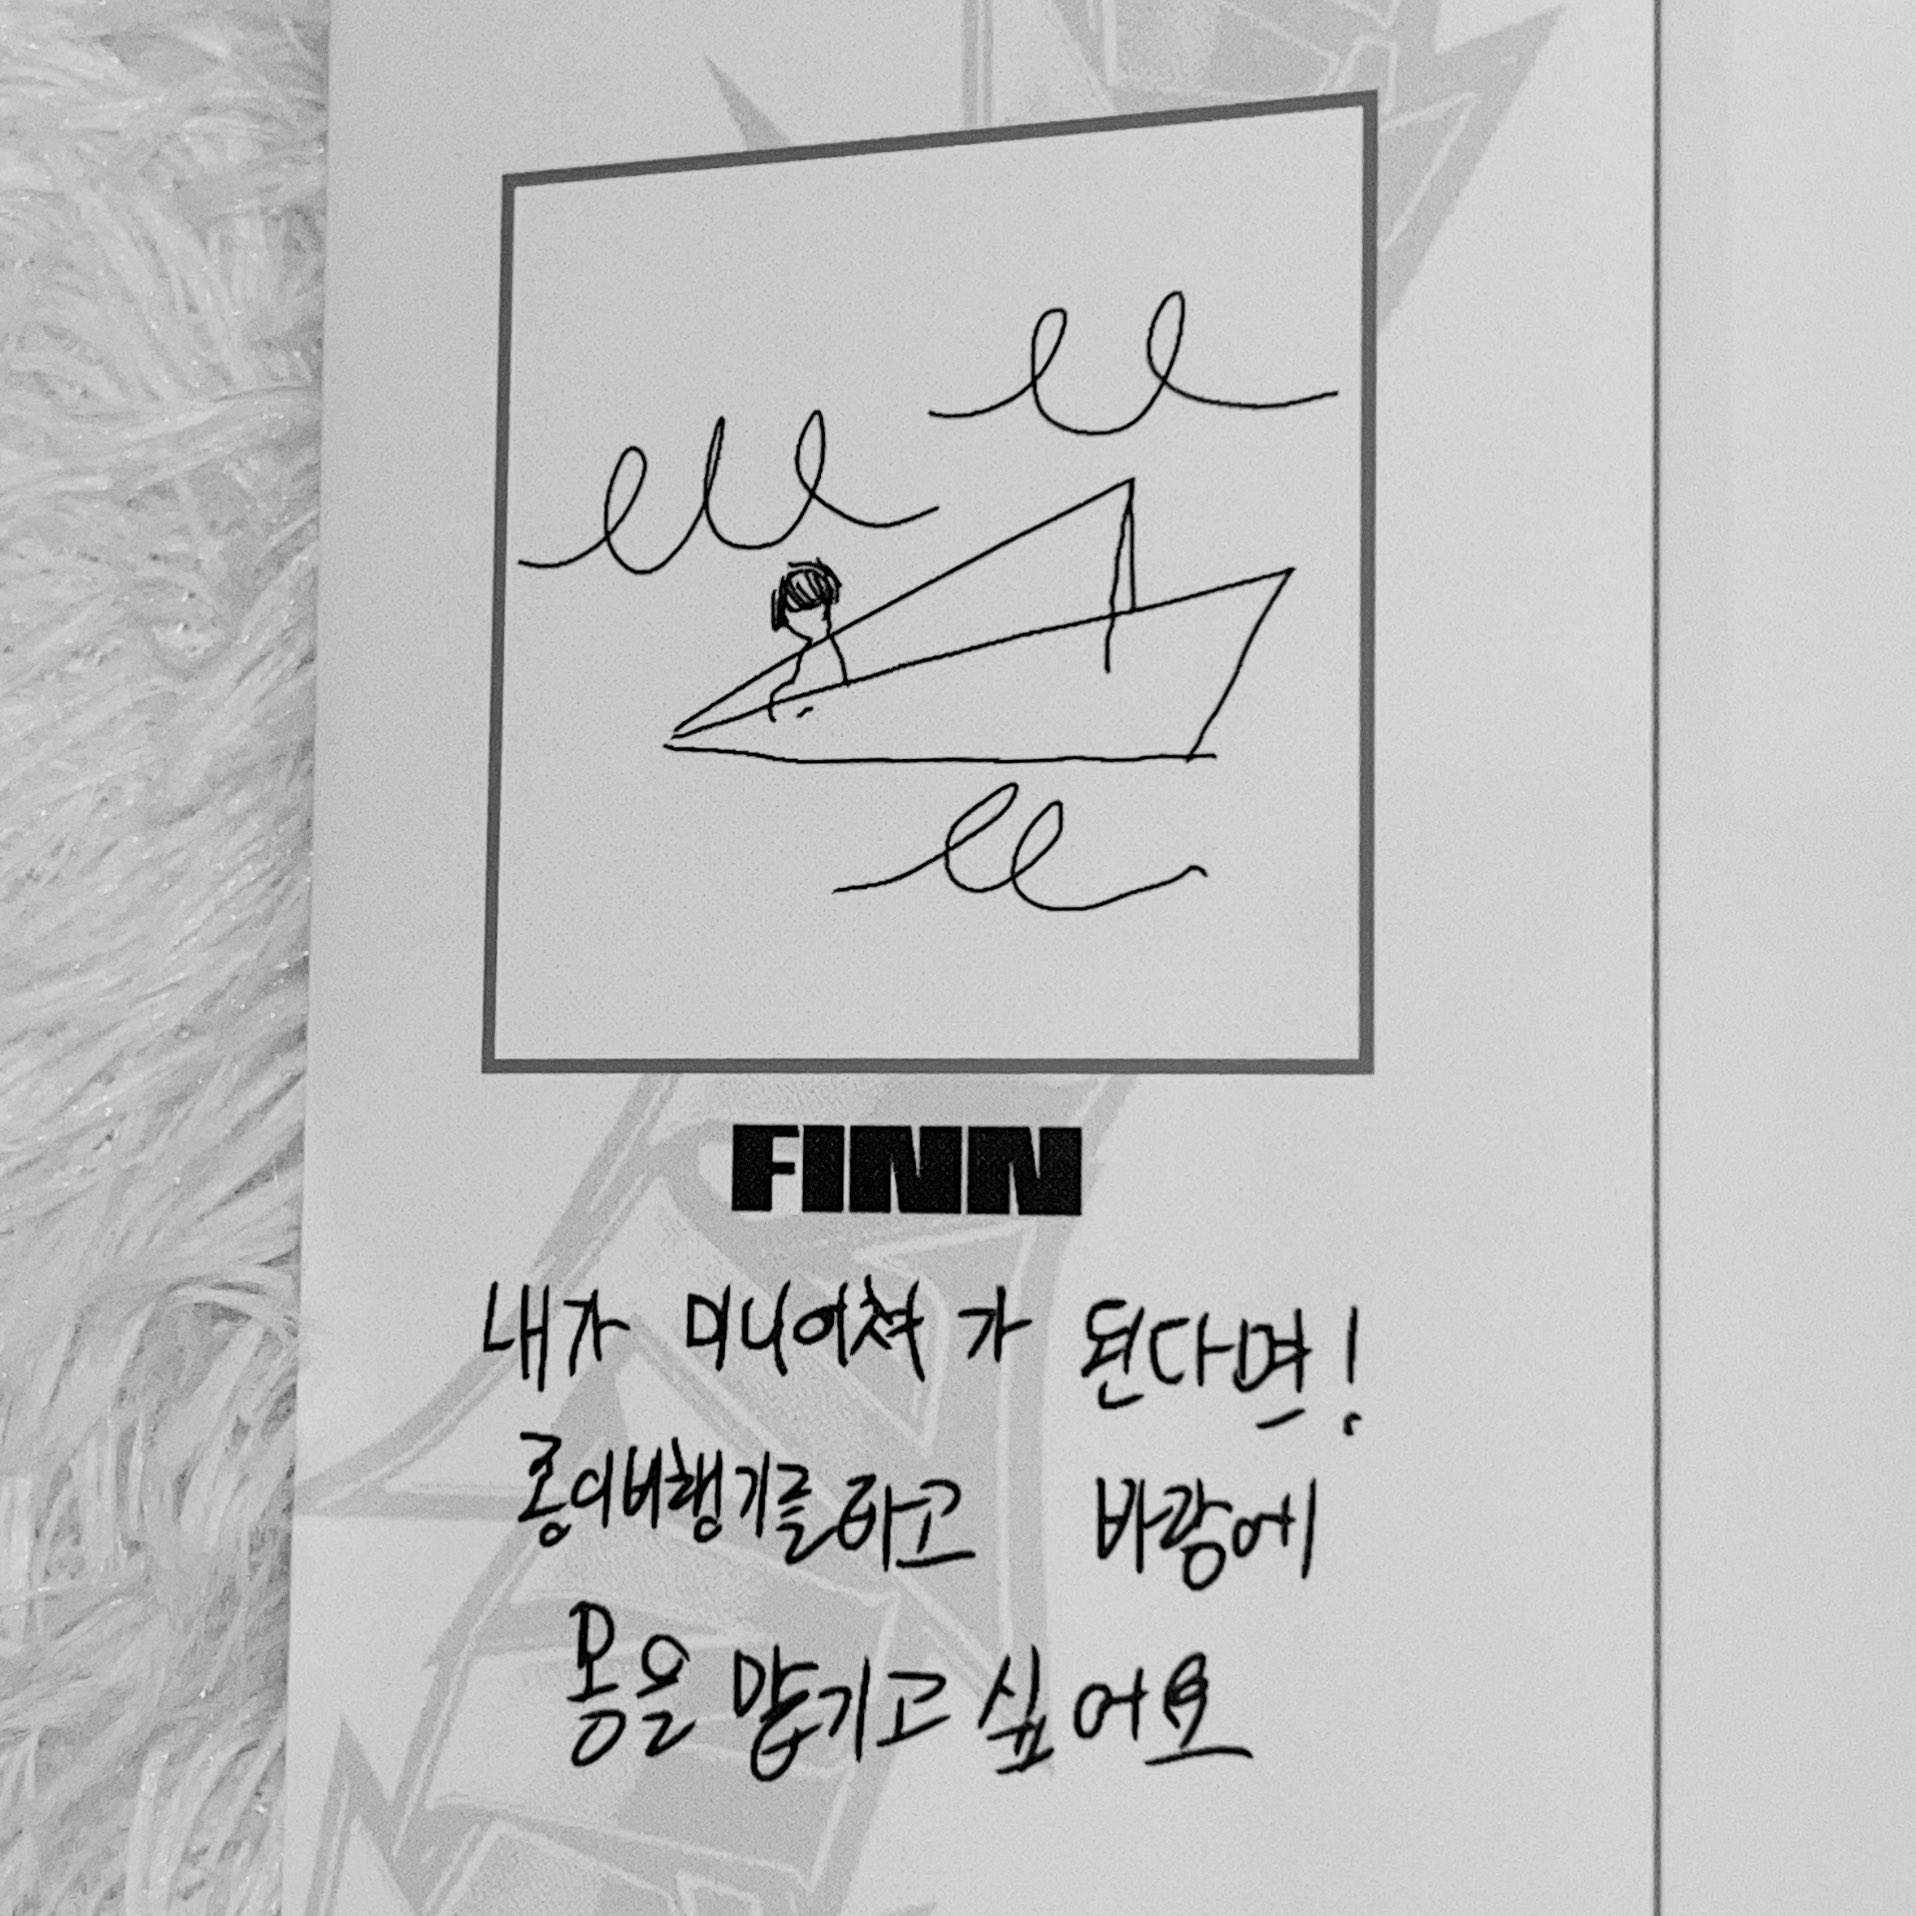 FINN
내가 미니어쳐가 된다면!
종이비행기를 타고 바람에
몸을 맡기고 싶어요